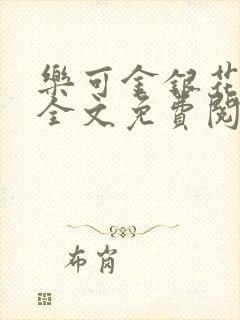 樂可金銀花
全文免費閱
布肖